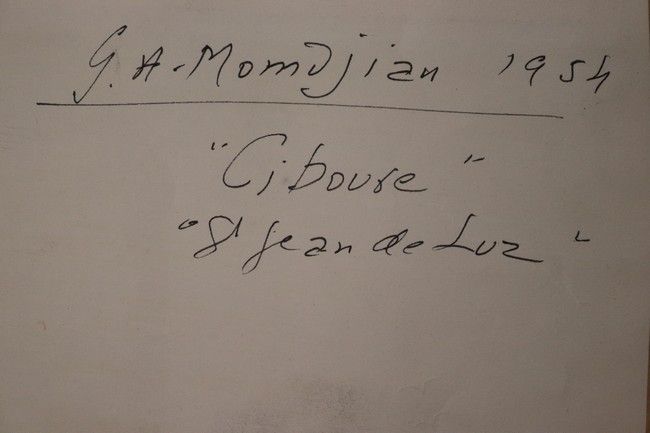 G. A. Momdjian 1954
"Ciboure"
"St Jean de Luz"